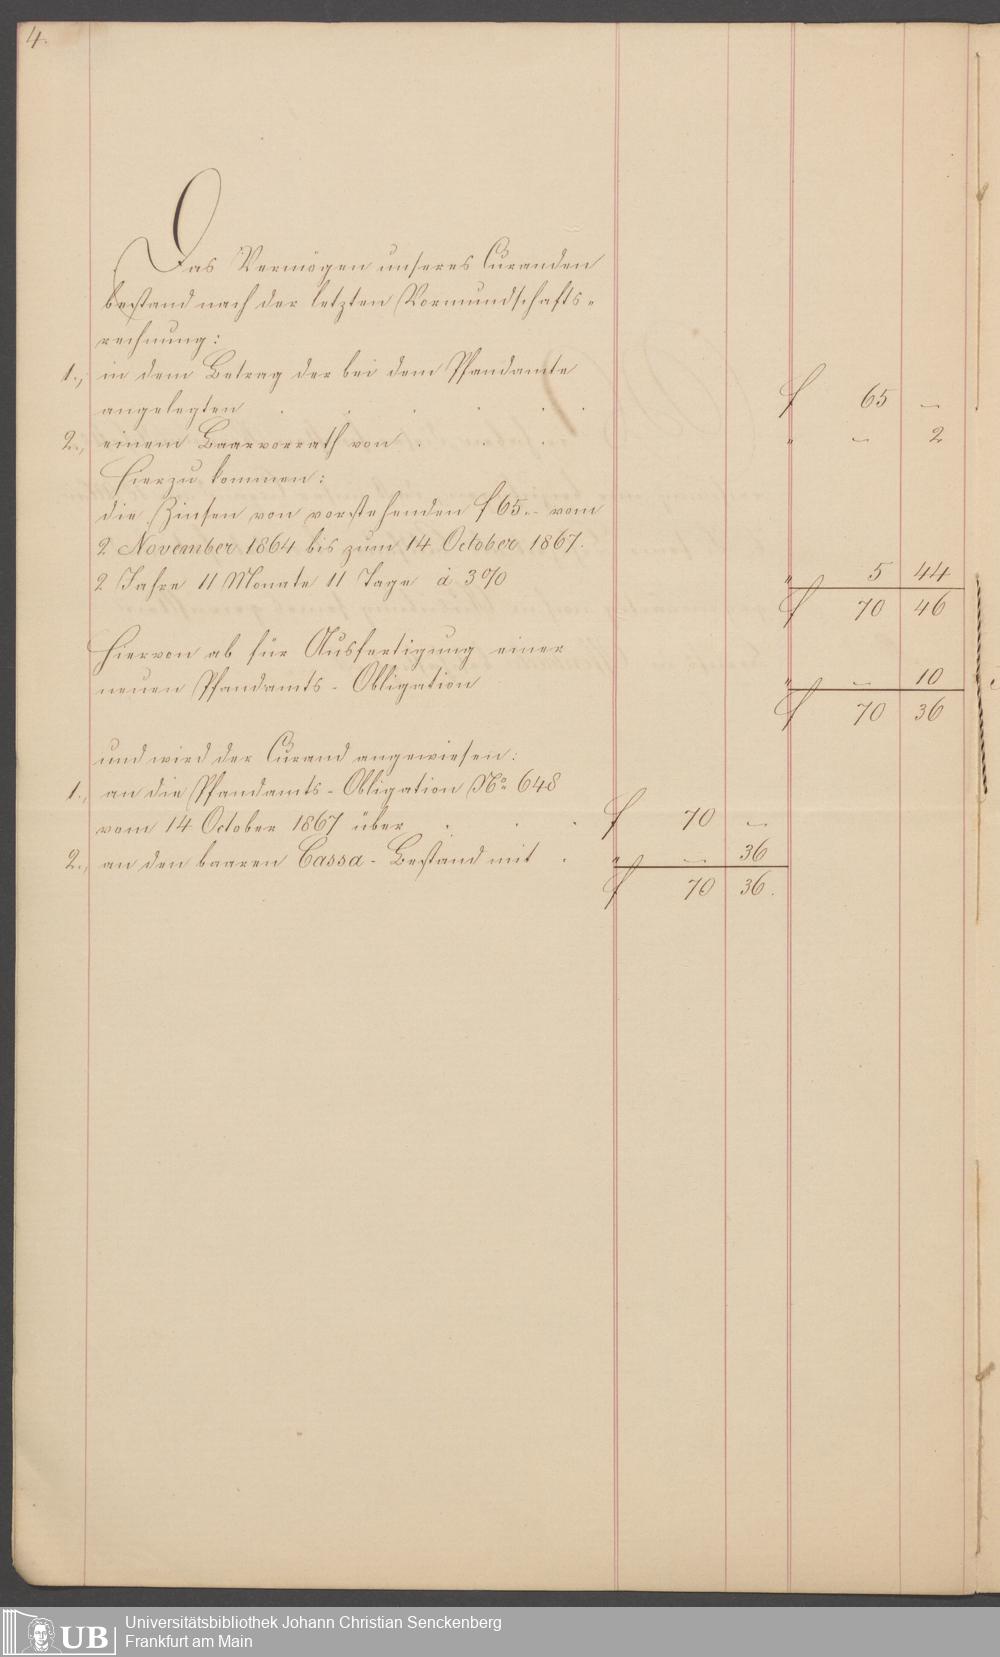 4.
Das Vermögen unseres Curanden
bestand nach der letzten Vormundschafts-
rechnung:
1., in dem Betrag der bei dem Pfandamte
angelegten . . . . . . f 65 –
2., einem Baarvorrath von . . . " – 2
Hierzu kommen:
die Zinsen von vorstehenden f 65.– vom
2 November 1864 bis zum 14 October 1867.
2 Jahre 11 Monate 11 Tage à 3% " 5 44
f 70 46
Hiervon ab für Ausfertigung einer
neuen Pfandamts-Obligation " – 10
f 70 36
und wird der Curand angewiesen:
1., an die Pfandamts-Obligation No. 648
vom 14 October 1867 über . . . f 70 –
2., an den baaren Cassa-Bestand mit . " – 36
f 70 36.
UB
Universitätsbibliothek Johann Christian Senckenberg
Frankfurt am Main